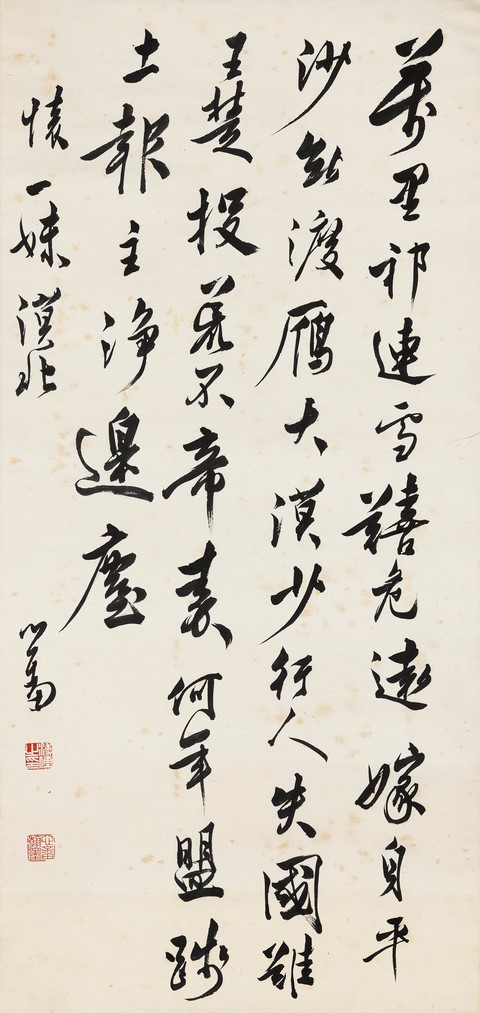 萬里祁連雪囏危遠嫁身平
沙無渡鴈大漠少行人失國難
王楚投荒不帝秦何年盟踐
土報主淨邊塵
懷一妹漠北
心畬